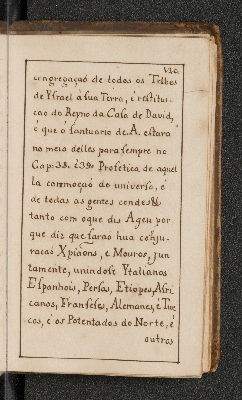 V20.
congregaçaõ de todos os Tribos
de Ysrael á sua Terra, é restitui-
çaõ do Reyno da Casa de David,
é que o santuario de A. estara
no meio delles para sempre no
Cap: 38. é 39. Profetiza de aquel
la commoçaõ do universo, é
de todas as gentes
tanto com o que dis Ageu por
que diz que faraõ hua conju-
racaõ Xpiãons, e Mouros, jun
tamente, unindose Ytalianos
Espanhois, Persas, Etiopes, Afri
canos, Franseses, Alemanes, é Tur
cos, é os Potentados do Norte, é
outros